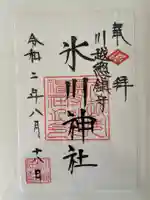 奉拝
川越總鎮守
氷川神社
令和二年八月十八日